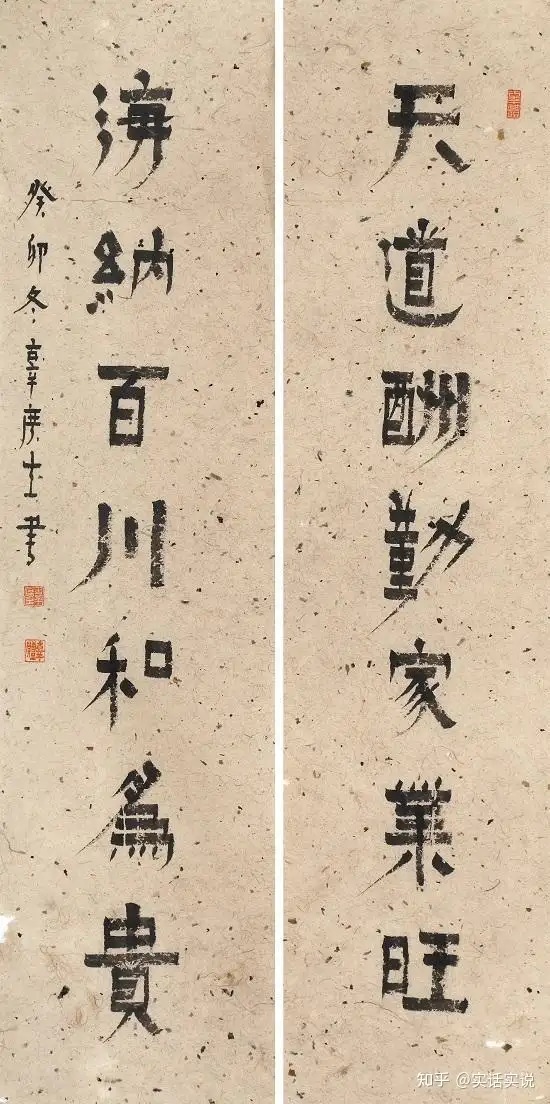 天道酬勤家業旺
海納百川和爲貴
癸卯冬 士書
知乎 @实话实说